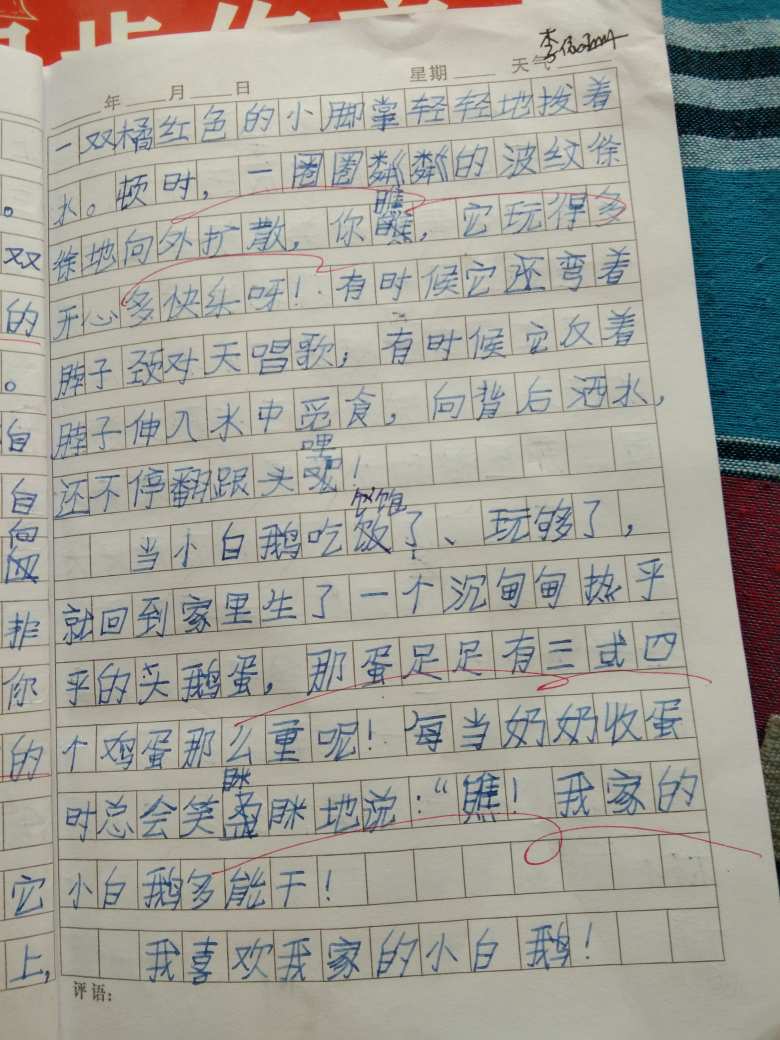 年 月 日 星期 天气
一双橘红色的小脚掌轻轻地拨着
水。顿时，一圈圈粼粼的波纹徐
徐地向外扩散，你瞧，它玩得多
开心多快乐呀！有时候它还弯着
脖子颈对天唱歌；有时候它反着
脖子伸入水中觅食，向背后洒水，
还不停翻跟头哩！
当小白鹅吃饱了、玩够了，
就回到家里生了一个沉甸甸热乎
乎的头鹅蛋，那蛋足足有三或四
个鸡蛋那么重呢！每当奶奶收蛋
时总会笑眯眯地说：“瞧！我家的
小白鹅多能干！
我喜欢我家的小白鹅！
评语：
。
双
的
。
自
自
向
非
你
的
它
上，